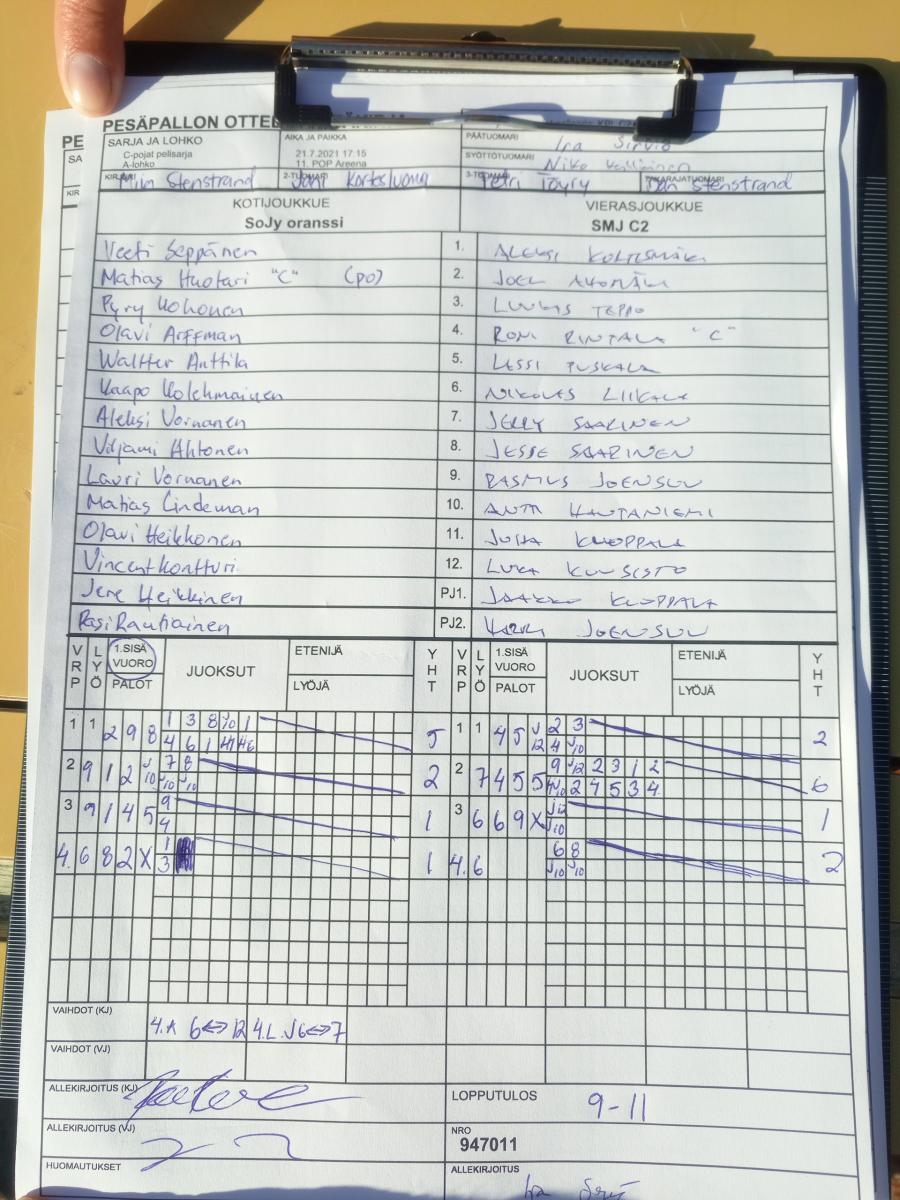 PE
SA
KIR
PESÄPALLON OTTE
SARJA JA LOHKO
C-pojat pelisarja
A-lohko
AIKA JA PAIKKA
21.7.2021 17:15
11. POP Areena
PÄÄTUOMARI
SYÖTTÖTUOMARI Niko
KIRJURI Stenstrand
2-TUOMARI
3-TUOMARI Petri Töyry
TAKARAJATUOMARI Stenstrand
KOTIJOUKKUE
SoJy oranssi
VIERASJOUKKUE
SMJ C2
Veeti Seppänen 1. ALEKSI
Matias Huotari "C" (PO) 2. JOEL
Pyry Kohonen 3. LUUKAS TEPPO
Olavi Arffman 4. RONI RINTALA "C"
Waltter Anttila 5. LESSI PUSKALA
Kaapo Kolehmainen 6. NIKOLAS LIIKALA
Aleksi Vornanen 7. JERRY SAARINEN
Viljami Ahtonen 8. JESSE SAARINEN
Lauri Vornanen 9. RASMUS JOENSUU
Matias Lindeman 10. ANTTI HAUTANIEMI
Olavi Heikkonen 11. JUHA KUOPPALA
Vincent Kontturi 12. LUKA KUUSISTO
Jere Heikkinen PJ1. JAAKKO KUOPPALA
Pasi Rautiainen PJ2. HARRI JOENSUU
VRP LYÖ 1.SISÄ VUORO PALOT JUOKSUT ETENIJÄ LYÖJÄ YHT VRP LYÖ 1.SISÄ VUORO PALOT JUOKSUT ETENIJÄ LYÖJÄ YHT
1 1 2 9 8 1 3 8 J10 1 5 1 1 4 5 J12 2 3 2
4 6 1 4 J10
2 9 1 2 J10 7 8 2 2 7 4 5 5 9 J12 2 3 1 2 6
J10 J10 2 4 5 3 4
3 9 1 4 5 9 1 3 6 6 9 X J12 1
4 J10
4. 6 8 2 X 1 1 4. 6 6 8 2
3 J10 J10
VAIHDOT (KJ) 4.A 6↔12 4.L J6↔7
VAIHDOT (VJ)
ALLEKIRJOITUS (KJ)
LOPPUTULOS 9-11
ALLEKIRJOITUS (VJ)
NRO
947011
HUOMAUTUKSET
ALLEKIRJOITUS